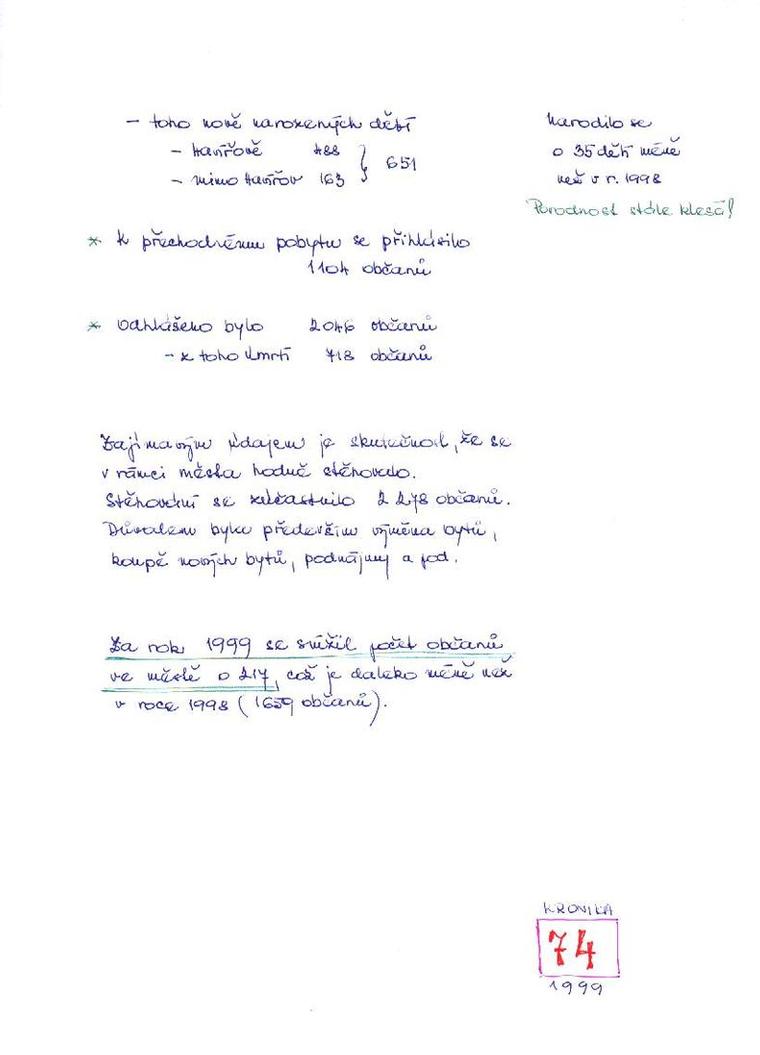 - toho nově narozených dětí
- Havířově 488
- mimo Havířov 163
651
Narodilo se
o 35 dětí méně
než v r. 1998
Porodnost stále klesá!
* K přechodnému pobytu se přihlásilo
1104 občanů
* Odhlášeno bylo 2046 občanů
- z toho úmrtí 718 občanů
Zajímavým údajem je skutečnost, že se
v rámci města hodně stěhovalo.
Stěhování se zúčastnilo 2 278 občanů.
Důvodem byla především výměna bytů,
koupě nových bytů, podnájmy a pod.
Za rok 1999 se snížil počet občanů
ve městě o 217, což je daleko méně než
v roce 1998 (1659 občanů).
KRONIKA
74
1999